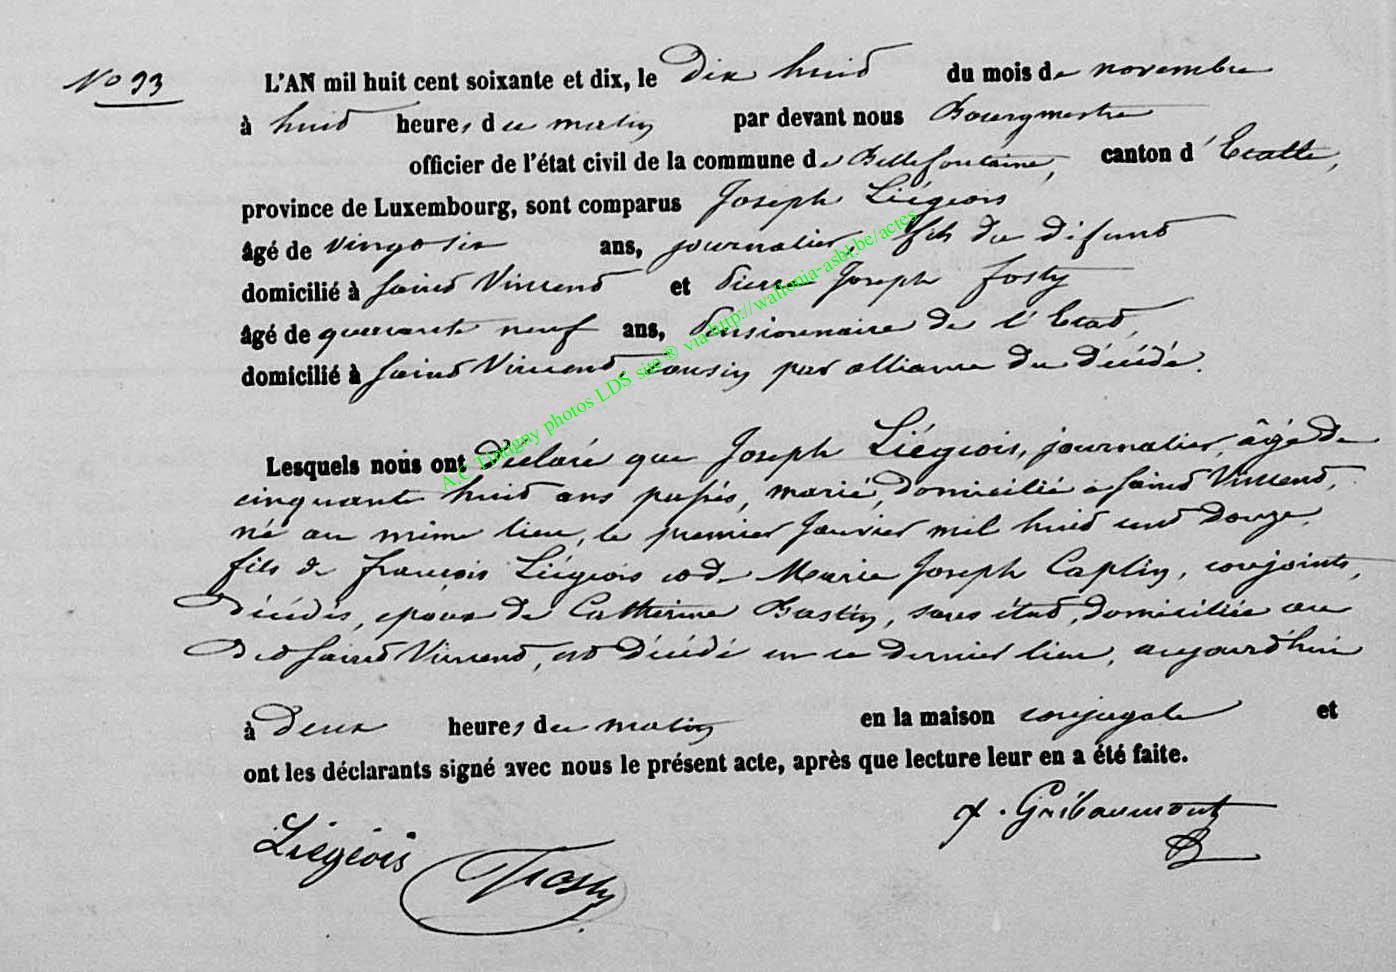 No 93
L'AN mil huit cent soixante et dix, le Dix huit du mois de novembre
à huit heures du matin par devant nous Bourgmestre
officier de l'état civil de la commune de Bellefontaine, canton d'Etalle,
province de Luxembourg, sont comparus Joseph Liégeois
âgé de vingt six ans, journalier, fils du défunt
domicilié à Saint Vincent et Pierre Joseph Fosty
âgé de quarante neuf ans, Pensionnaire de l'Etat,
domicilié à Saint Vincent, cousin par alliance du décédé.
A.C. Tintigny photos LDS site ® via http://wallonia-asbl.be/actes
Lesquels nous ont Déclaré que Joseph Liégeois, journalier, âgé de
cinquante huit ans passés, marié, domicilié à Saint Vincent,
né au même lieu, le premier Janvier mil huit cent douze,
fils de François Liégeois et de Marie Joseph Caplin, conjoints,
décédés, époux de Catherine Bastin, sans état, domiciliée au
dit Saint Vincent, est décédé en ce dernier lieu, aujourd'hui
à Deux heures du matin en la maison conjugale et
ont les déclarants signé avec nous le présent acte, après que lecture leur en a été faite.
Gribaumont
Liégeois Fosty